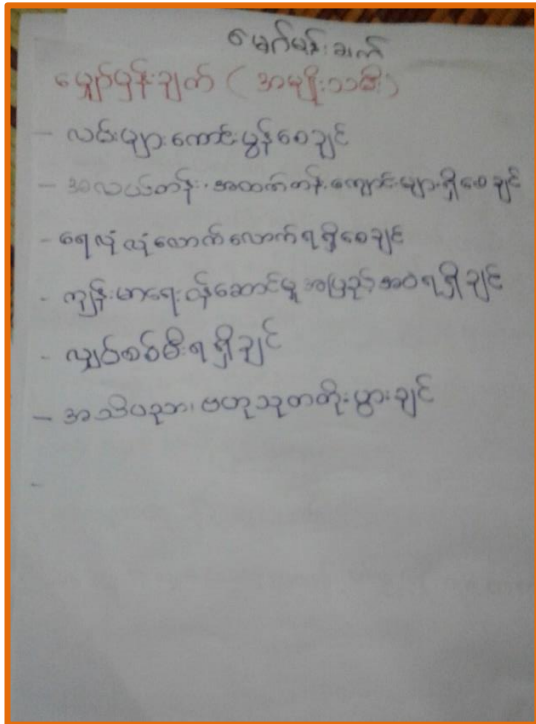 မျှော်မှန်းချက်
မျှော်မှန်းချက် ( အမျိုးသမီး )
- လမ်းများကောင်းမွန်စေချင်
- အလယ်တန်း၊ အထက်တန်းကျောင်းများရှိစေချင်
- ရေလုံလုံလောက်လောက်ရရှိစေချင်
- ကျန်းမာရေးဝန်ဆောင်မှုအပြည့်အဝရရှိချင်
- လျှပ်စစ်မီးရရှိချင်
- အသိပညာ၊ ဗဟုသုတတိုးပွားချင်
-